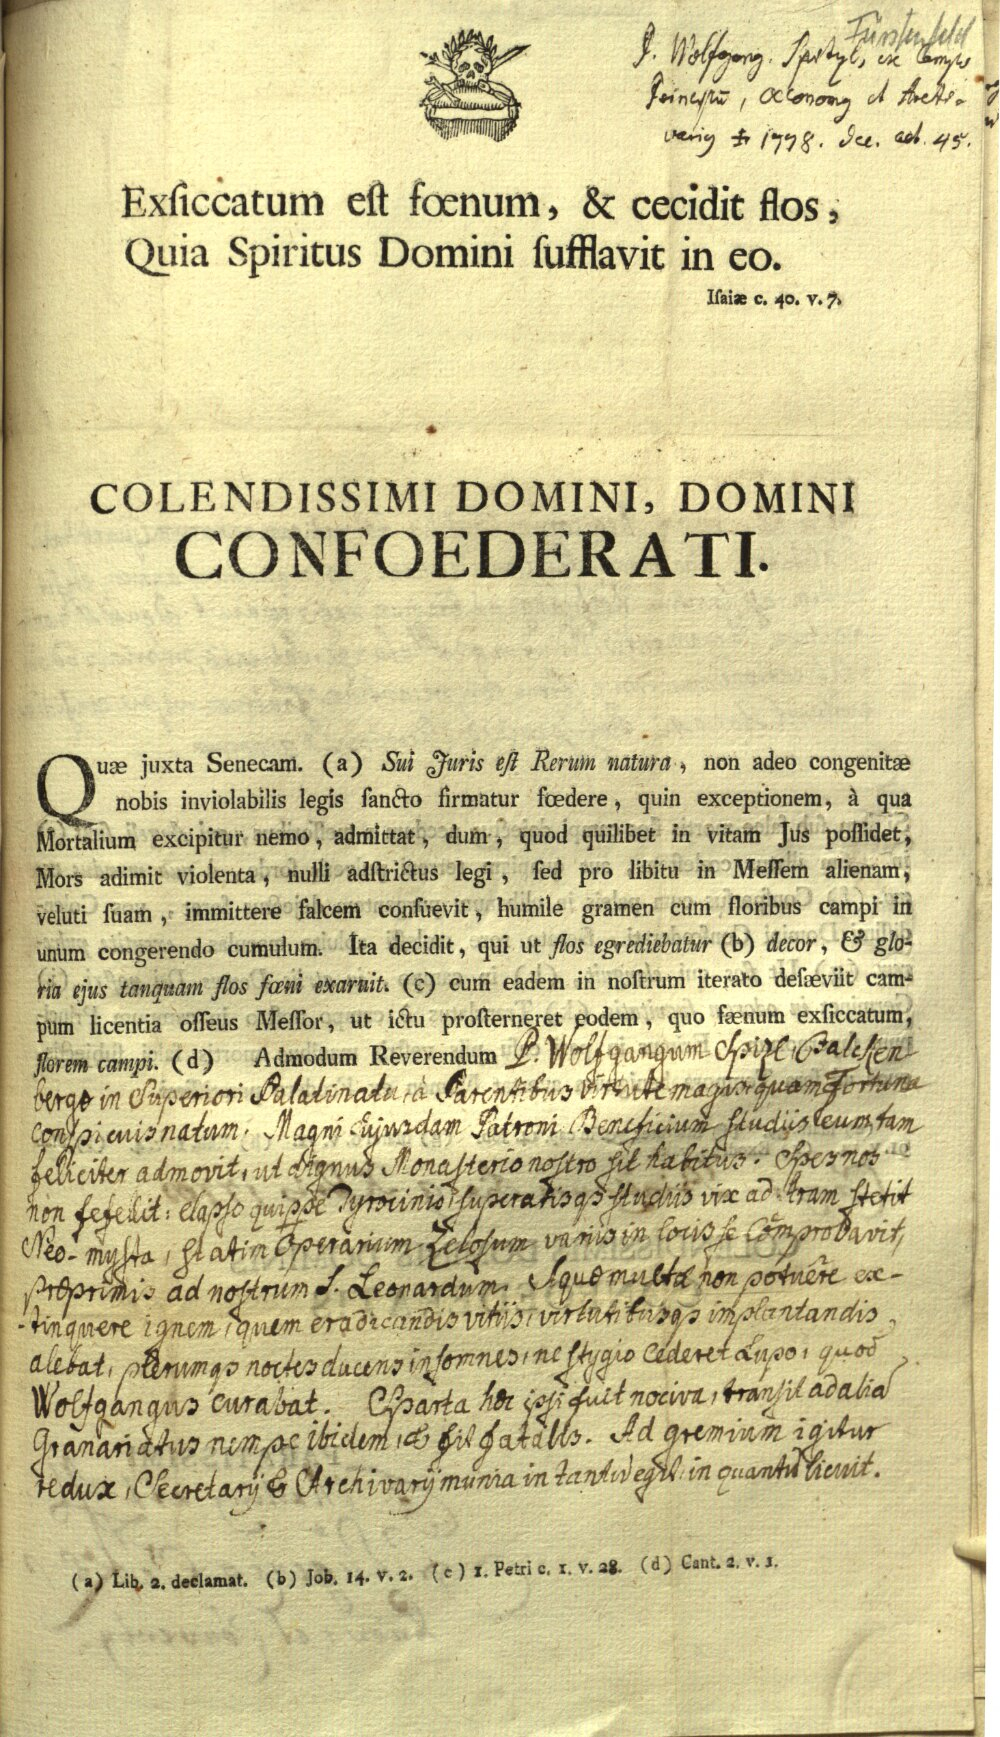 Fürstenfeld
P. Wolfgang. Spitzl, ex Campo
Principũ, Oeconomg et Archi-
varig ‡ 1778. Dec. aet. 45.
Exſiccatum eſt fœnum, & cecidit flos,
Quia Spiritus Domini ſufflavit in eo.
Iſaiæ c. 40. v. 7.
COLENDISSIMI DOMINI, DOMINI
CONFOEDERATI.
Quæ juxta Senecam. (a) Sui Juris eſt Rerum natura, non adeo congenitæ
nobis inviolabilis legis ſancto firmatur fœdere, quin exceptionem, à qua
Mortalium excipitur nemo, admittat, dum, quod quilibet in vitam Jus poſſidet,
Mors adimit violenta, nulli adſtrictus legi, ſed pro libitu in Meſſem alienam,
veluti ſuam, immittere falcem conſuevit, humile gramen cum floribus campi in
unum congerendo cumulum. Ita decidit, qui ut flos egrediebatur (b) decor, & glo-
ria ejus tanquam flos fœni exaruit. (c) cum eadem in noſtrum iterato deſæviit cam-
pum licentia oſſeus Meſſor, ut ictu proſterneret eodem, quo fænum exſiccatum,
florem campi. (d) Admodum Reverendum P. Wolfgangum Spizl, Falcken
bergæ in Superiori Palatinatu, à Parentibus virtute magis, quam Fortuna
conspicuis natum. Magni cujusdam Patroni Beneficium studiis eum tam
feliciter admovit, ut dignus Monasterio nostro sit habitus. Spes nos
non fefellit: elapso quippe Tyrocinio, superatisqs studiis vix ad Aram stetit
Neo-mysta, statim Operarium Zelosum variis in locis se comprobavit,
præprimis ad nostrum S. Leonardum. Aquæ multæ non potuêre ex-
-tinquere ignem, quem eradicandis vitiis, virtutibusqs implantandis
alebat, plerumqs noctes ducens insomnes, ne stygio cederet Lupo, quod
Wolfgangus curabat. Sparta hæc ipsi fuit nociva, transit ad alia
Granariatus nempe ibidem, & fit fatalis. Ad gremium igitur
redux, Secretarij & Archivarij munia in tantũ egit, in quantũ licuit.
(a) Lib. 2. declamat. (b) Job. 14. v. 2. (c) 1. Petri c. 1. v. 28. (d) Cant. 2. v. 1.